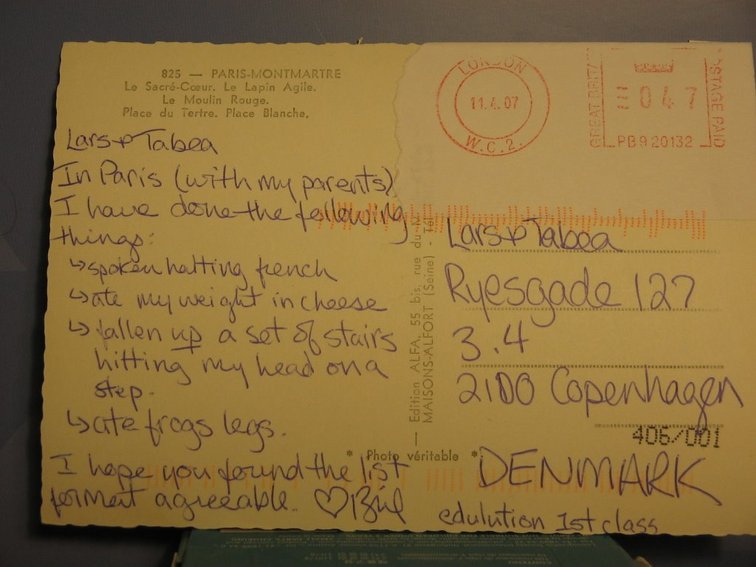 825 — PARIS-MONTMARTRE
Le Sacré-Cœur. Le Lapin Agile.
Le Moulin Rouge.
Place du Tertre. Place Blanche.
Lars & Tabea
In Paris (with my parents)
I have done the following
things:
↳ spoken halting french
↳ ate my weight in cheese
↳ fallen up a set of stairs
hitting my head on a
step.
↳ ate frogs legs.
I hope you found the list
format agreeable. ♡
— Edition ALFA, 55 bis, rue du
MAISONS-ALFORT (Seine) -
* Photo véritable *
LONDON
11.4.07
W.C.2.
GREAT BRIT
047
POSTAGE PAID
PB920132
Lars & Tabea
Ryesgade 127
3.4
2100 Copenhagen
406/001
DENMARK
edulution 1st class